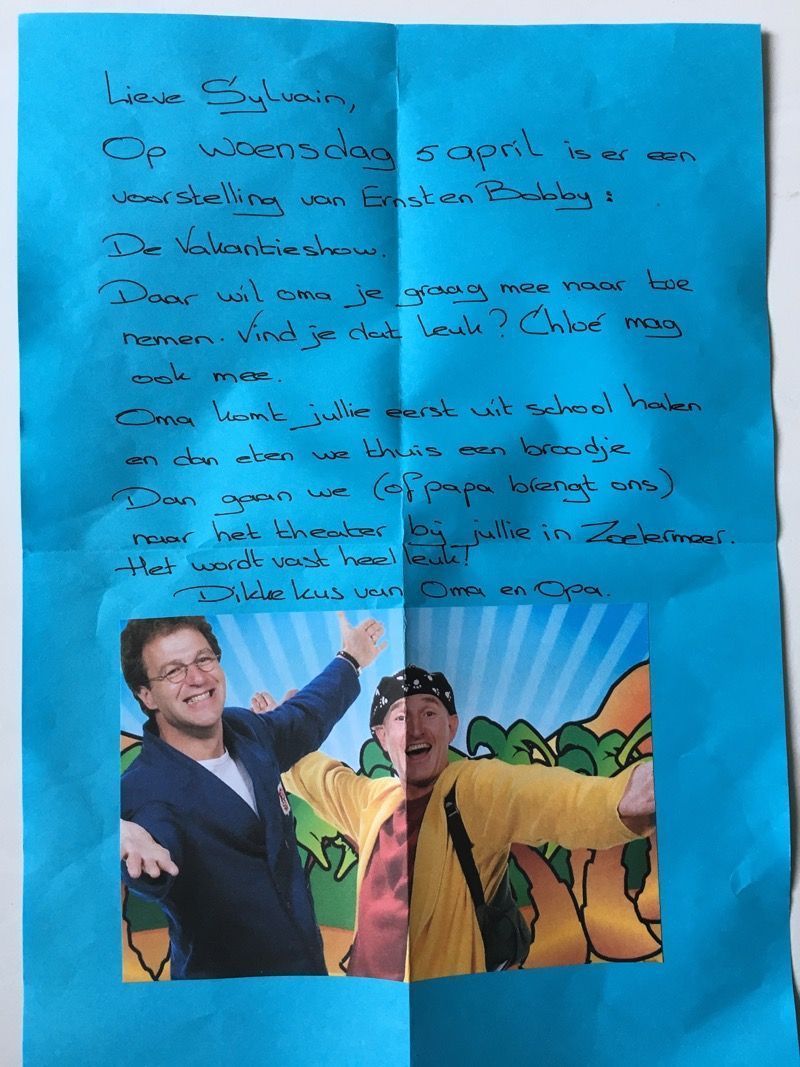 Lieve Sylvain,
Op woensdag 5 april is er een
voorstelling van Ernst en Bobby :
De Vakantieshow.
Daar wil oma je graag mee naar toe
nemen. Vind je dat leuk? Chloé mag
ook mee.
Oma komt jullie eerst uit school halen
en dan eten we thuis een broodje
Dan gaan we (of papa brengt ons)
naar het theater bij jullie in Zoetermeer.
Het wordt vast heel leuk!
Dikke kus van Oma en Opa.